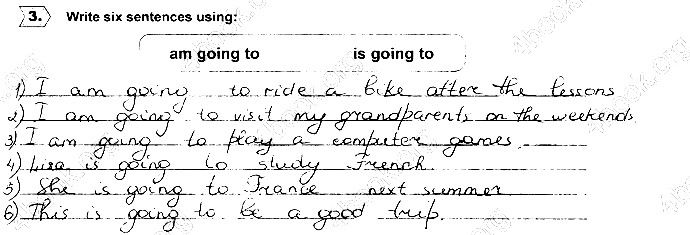 3. Write six sentences using:
am going to is going to
1) I am going to ride a bike after the lessons
2) I am going to visit my grandparents on the weekends
3) I am going to play a computer games.
4) Lisa is going to study French.
5) She is going to France next summer
6) This is going to be a good trip.